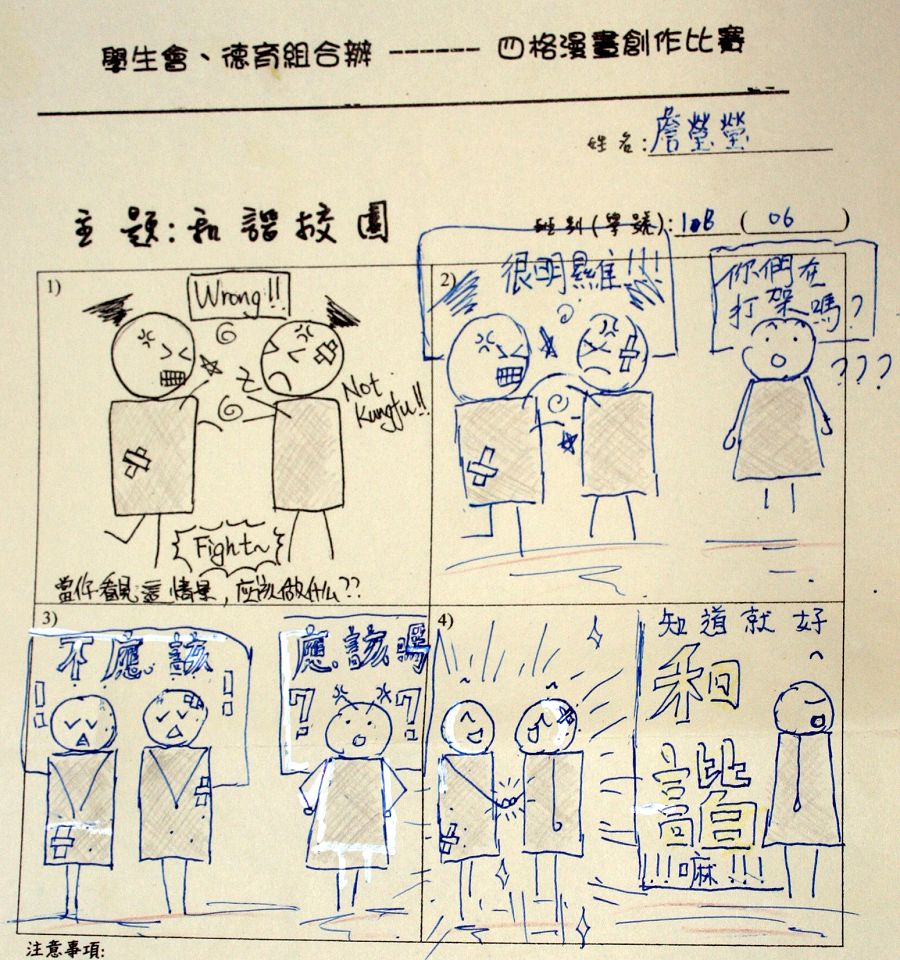 學生會、德育組合辦 ------ 四格漫畫創作比賽
姓名:詹瑩瑩
主題:和諧校園
班別(學號): 10B ( 06 )
1)
Wrong!!
Not
Kungfu!!
Fight~
當你看見這情景,應該做什么??
2)
很明顯隹!!!
你們在
打架嗎?
???
3)
不應該
!!
!!
應該嗎
?
?
4)
知道就好
和
諧
!!!嘛!!!
注意事項: